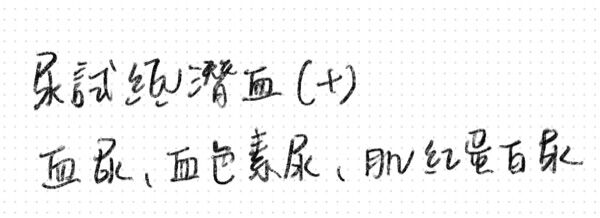 尿試紙潜血(+)
血尿、血色素尿、肌红蛋白尿